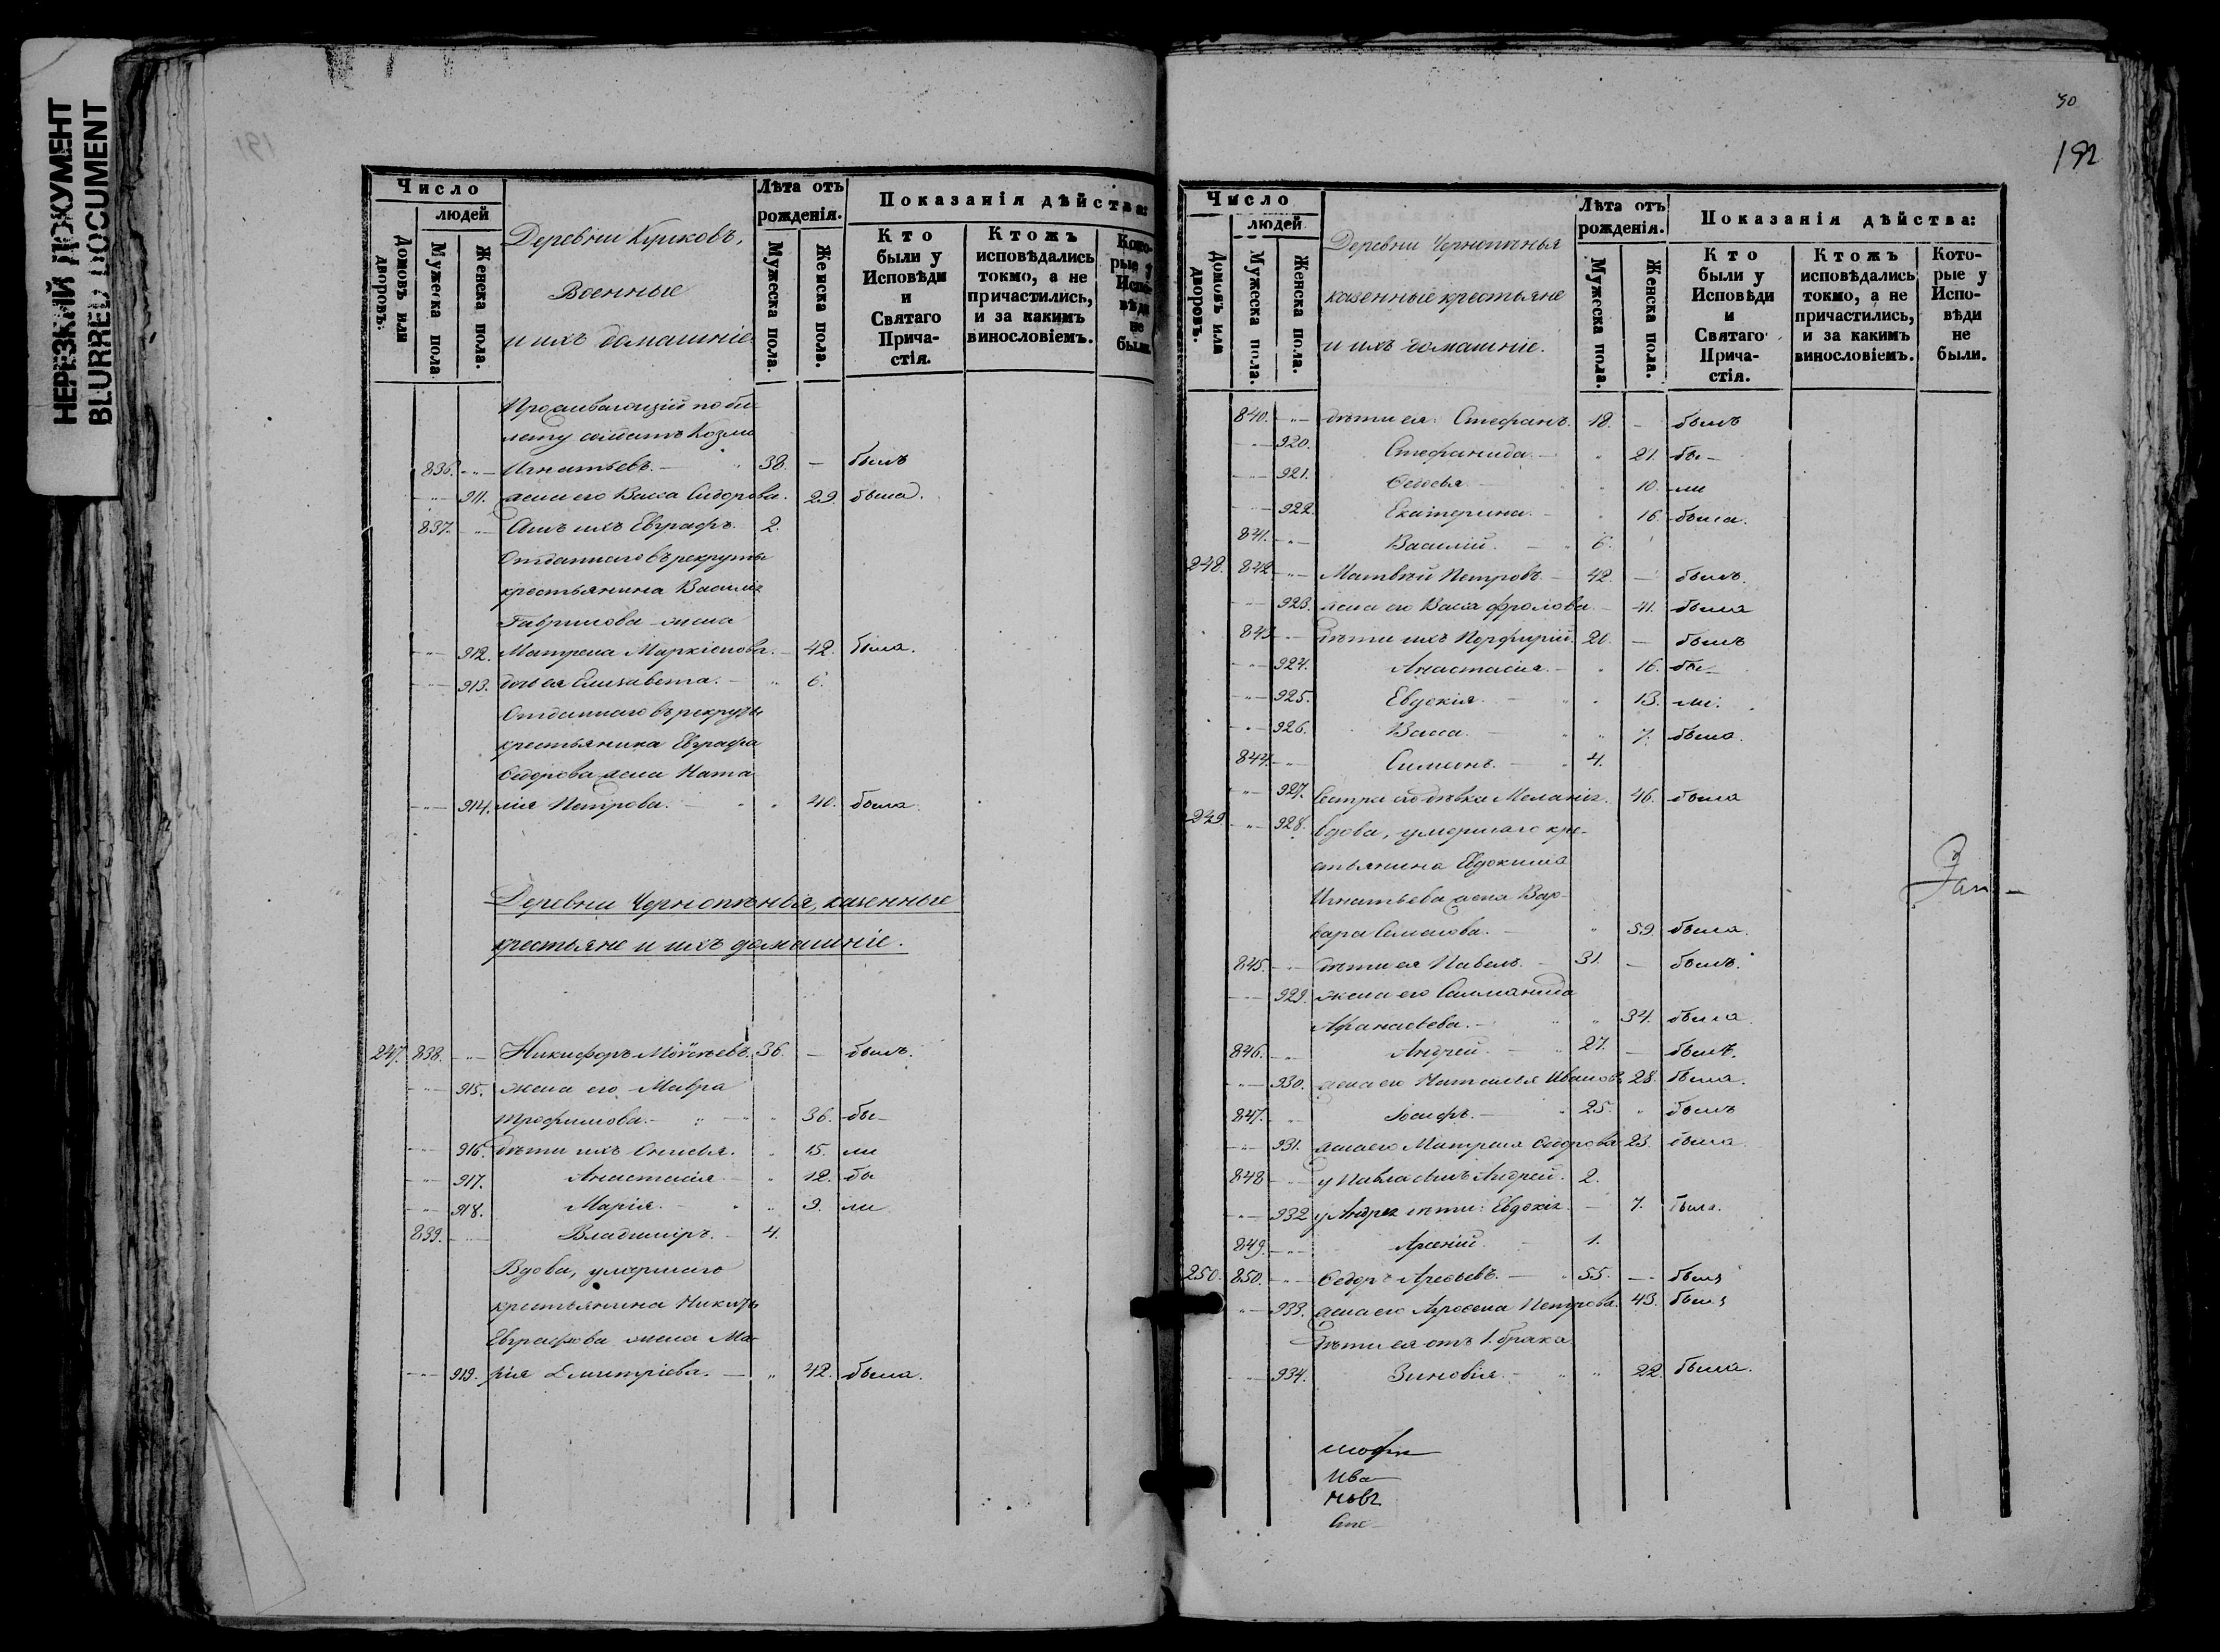 НЕРЕЗКИЙ ДОКУМЕНТ
BLURRED DOCUMENT
191
Число
людей
Домовъ или дворовъ.
Мужеска пола.
Женска пола.
Деревни Куликовъ,
Военные
и ихъ домашніе.
Лѣта отъ рожденія.
Мужеска пола.
Женска пола.
Показанія дѣйства:
Кто были у Исповѣди и Святаго Прича-стія.
Ктожъ исповѣдались токмо, а не причастились, и за какимъ винословіемъ.
Кото-рые у Испо-вѣди не были.
Проживающій по би-
лету солдатъ Козма
836. Игнатьевъ. 38. — былъ
911. жена его Васса Сидорова. 29. была.
837. Сынъ ихъ Евграфъ. 2.
Отданнаго въ рекруты
крестьянина Василія
Гаврилова жена
912. Матрена Маркіонова. — 42. была.
913. дочь ея Елизавета. 6.
Отданнаго въ рекруты
крестьянина Евграфа
Сидорова жена Ната-
914. лія Петрова. 40. была.
Деревни Чернопенья, казенные
крестьяне и ихъ домашніе.
247. 838. Никифоръ Моисеевъ. 36. — былъ.
915. жена его Мавра
Трофимова. 36. бы-
916. дѣти ихъ 15. ли
917. Анастасія 12. бы
918. Марія. 9. ли
839. Владиміръ. 4.
Вдова, умершаго
крестьянина Никиты
Евграфова жена Ма-
919. рія Димитріева. — 42. была.
50
192
Число
людей
Домовъ или дворовъ.
Мужеска пола.
Женска пола.
Деревни Чернопенья
казенные крестьяне
и ихъ домашніе.
Лѣта отъ рожденія.
Мужеска пола.
Женска пола.
Показанія дѣйства:
Кто были у Исповѣди и Святаго Прича-стія.
Ктожъ исповѣдались токмо, а не причастились, и за какимъ винословіемъ.
Кото-рые у Испо-вѣди не были.
840. дѣти ея: Стефанъ. 18. — былъ
920. Стефанида. 21. бы-
921. 10. ли
922. Екатерина. 16. была.
841. Василій. 6.
248. 842. Матвѣй Петровъ. 42. — былъ.
923. жена его Васса Фролова. 41. была
843. дѣти ихъ Порфирій. 20. — былъ
924. Анастасія. 16. бы-
925. Евдокія. 13. ли.
926. Васса. 7. была.
844. Симеонъ. 4.
927. Сестра его дѣвка Меланія. 46. была
249. 928. Вдова, умершаго кре-
стьянина Евдокима
Игнатьева жена Вар-
вара Семенова. 59. была.
845. дѣти ея Павелъ. 31. — былъ.
929. жена его Саломанида
Афанасьева. 34. была
846. Андрей. 27. — былъ.
930. жена его Наталья Иванова 28. была.
847. Іосифъ. 25. былъ
931. жена его Матрена Сидорова 23. была.
848 у Павла сынъ Андрей. 2.
932 у Андрея дѣти: Евдокія 7. была.
849. Арсеній. 1.
250. 850. Сидоръ 55. — былъ
933. жена его Агрофена Петрова. 43. была
Дѣти ея отъ 1. брака
934. Зиновія. 22. была.
Ива-
новъ
Сте-